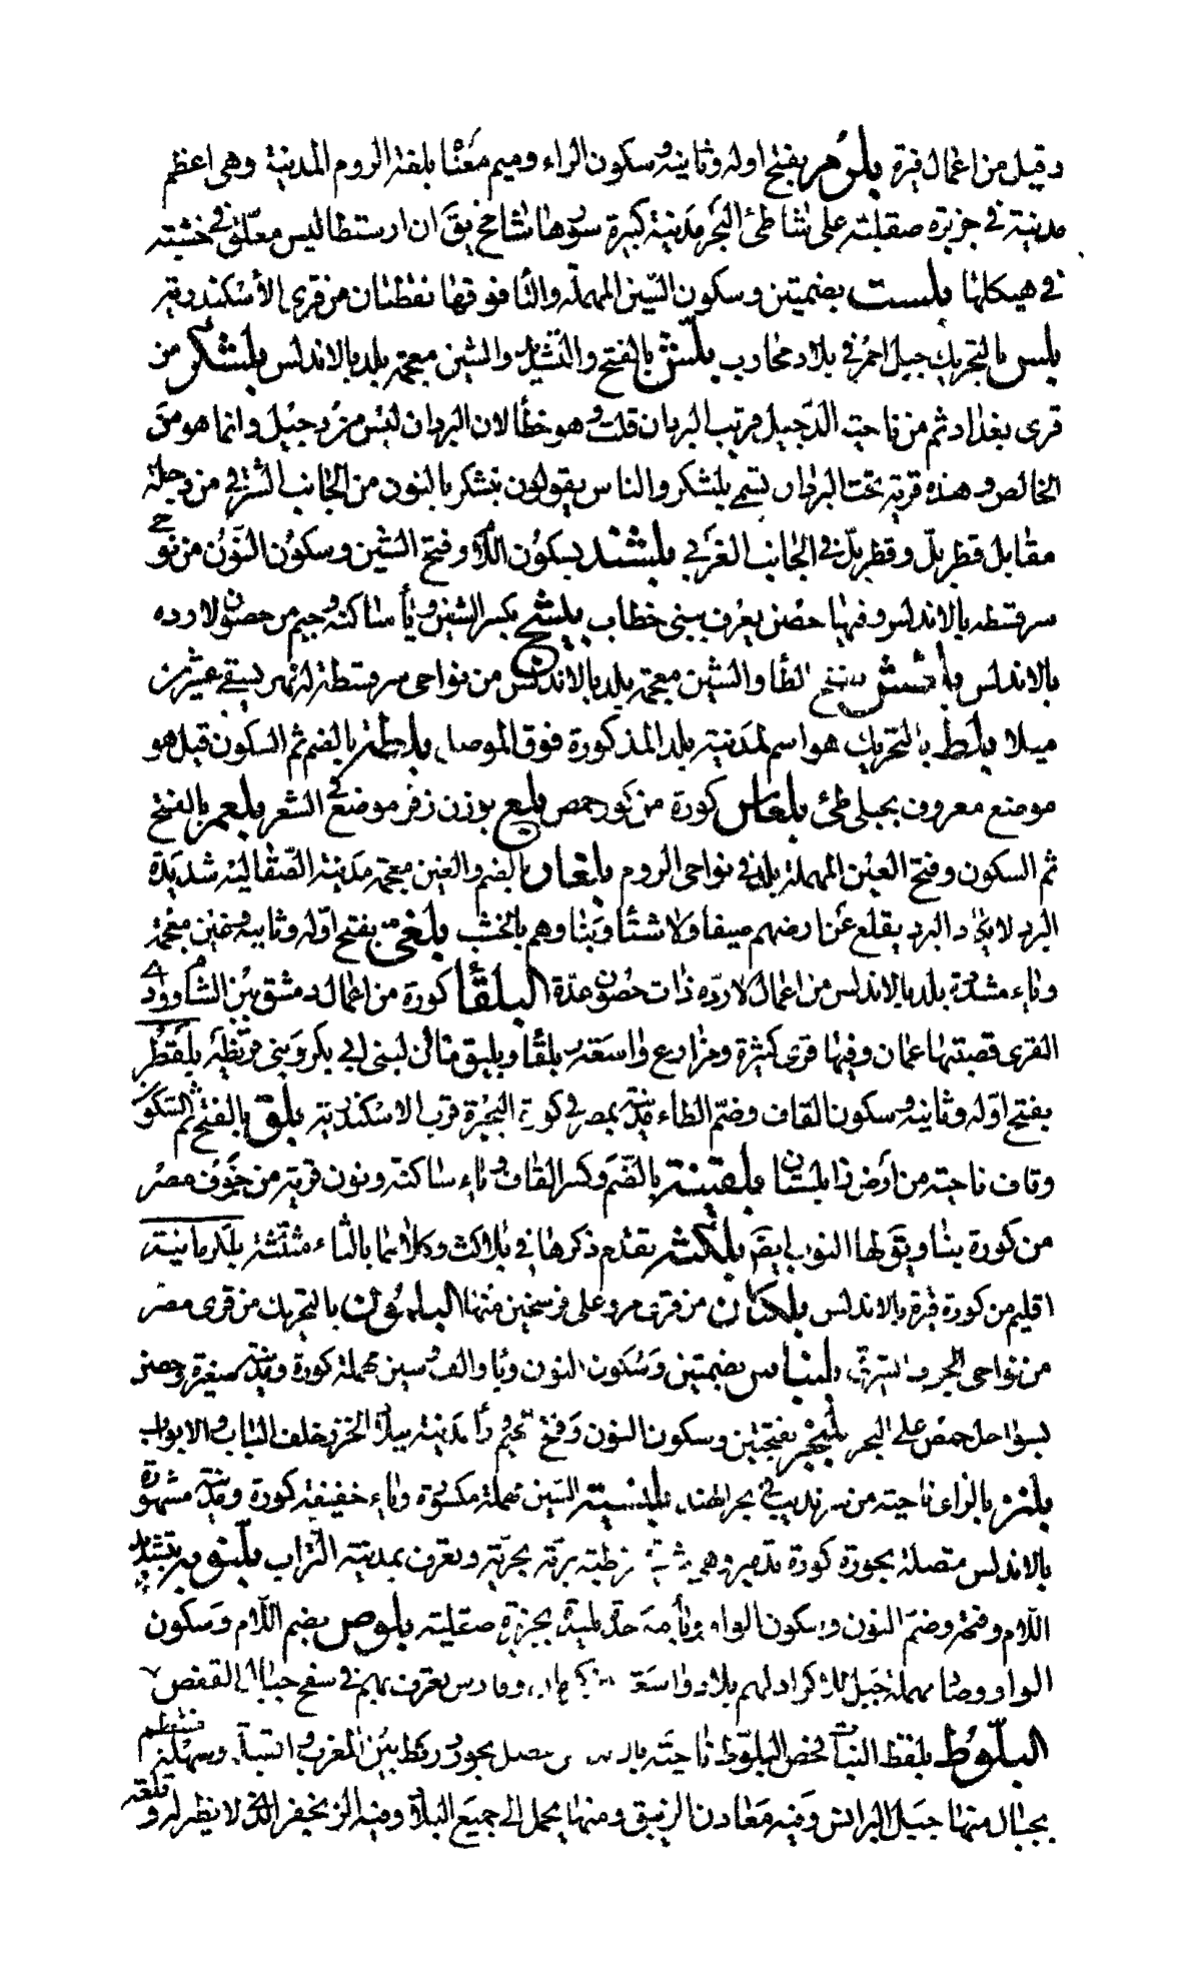 وقيل من اعمال فبرة بلرم بفتح اوله وثانيه وسكون الراء وميم معناها بلغة الروم المدينة وهى اعظم
مدينة فى جزيرة صقلية على شاطئ البحر مدينة كبيرة سورها شامخ يق ان ارسطاليس معلق فى خشبته
فى هيكلها بلست بضمتين وسكون السين المهملة والتا فوقها نقطتان من قرى الأسكندرية
بلس بالتحريك جبل احمر فى بلاد محارب بلش بالفتح والتشديد والشين معجمة بلد بالاندلس بلشكر من
قرى بغداد ثم من ناحية الدجيل قرب البردان قلت وهو خطأ لان البردان ليس من دجيل وانما هو من
الخالص وهذه قرية تحت البردان تسمى بلشكر والناس يقولون بنشكر بالنون من الجانب الشرقى من دجلة
مقابل قطربل وقطربل فى الجانب الغربى بلشند بسكون اللام وفتح الشين وسكون النون من نواحى
سرقسطه بالاندلس وفيها حصن يعرف ببنى خطاب بلشيج بكسر الشين ويأ ساكنة وجيم من حصون لارده
بالاندلس بلطش بفتح الطا والشين معجمة بلد بالاندلس من نواحى سرقسطة له نهر يسقى عشرين
ميلا بلط بالتحريك هو اسم لمدينة بلد المذكورة فوق الموصل بلطة بالضم ثم السكون قيل هو
موضع معروف بجبلى طئ بلعاس كورة من كور حمص بلع بوزن زفر موضع فى الشعر بلعم بالفتح
ثم السكون وفتح العين المهملة بلد فى نواحى الروم بلغار بالضم والغين معجمة مدينة الصقالبة شديدة
البرد لا يكاد البرد يقلع عن ارضهم صيفا ولا شتأ وبنا وهم بالخشب بلغى بفتح اوله وثانيه وغين معجمة
وياء مشددة بلد بالاندلس من اعمال لاردة ذات حصون عدة البلقأ كورة من اعمال دمشق بين الشام ووادى
القرى قصبتها عمان وفيها قرى كثيرة ومزارع واسعة بلقا وبليق ماآن لبنى ابى بكر وبنى قريظة بلقطر
بفتح اوله وثانيه وسكون القاف وضم الطاء مدينة بمصر فى كورة البحيرة قرب الاسكندرية بلق بالفتح ثم السكون
وقاف ناحية من أرض زابلستان بلقينة بالضم وكسر القاف وياء ساكنة ونون قرية من حوف مصر
من كورة بنا ويق لها البوب ايضا بلكثة تقدم ذكرها فى بلاكث وكلاهما بالثاء مثلثة بلكرمانية
اقليم من كورة قبرة بالاندلس بلكان من قرى مرو على فرسخين منها البلمون بالتحريك من قرى مصر
من نواحى الحوف الشرقى بلنياس بضمتين وسكون النون ويا والف وسين مهملة كورة ومدينة صغيرة وحصن
بسواحل حمص على البحر بلنجر بفتحتين وسكون النون وفتح الجيم ورأ مدينة ببلاد الخزر خلف الباب والابواب
بلنز بالزاى ناحية من سرنديب فى بحر الهند بلنسية السين مهملة مكسورة وياء خفيفة كورة ومدينة مشهورة
بالاندلس متصلة بحوزة كورة تدمير وهى شرقى قرطبة برية بحرية وتعرف بمدينة التراب بلنوبة بتشديد
اللام وفتحه وضم النون وسكون الواو وبأ موحدة بليدة بجزيرة صقلية بلوص بضم اللام وسكون
الواو وصاد مهملة جيل كالاكراد لهم بلاد واسعة بين كرمان وفارس يعرف بهم فى سفح جبال القفص
البلوط بلفظ النبات فحص البلوط ناحية بالاندلس يتصل بحوز قرطبة بين المغرب والقبلة وسهله منتظم
بجبال منها جبل البرانس وفيه معادن الزيبق ومنها يحمل الى جميع البلاد وفيه الزنجفر الذى لا نظير له وقلعة